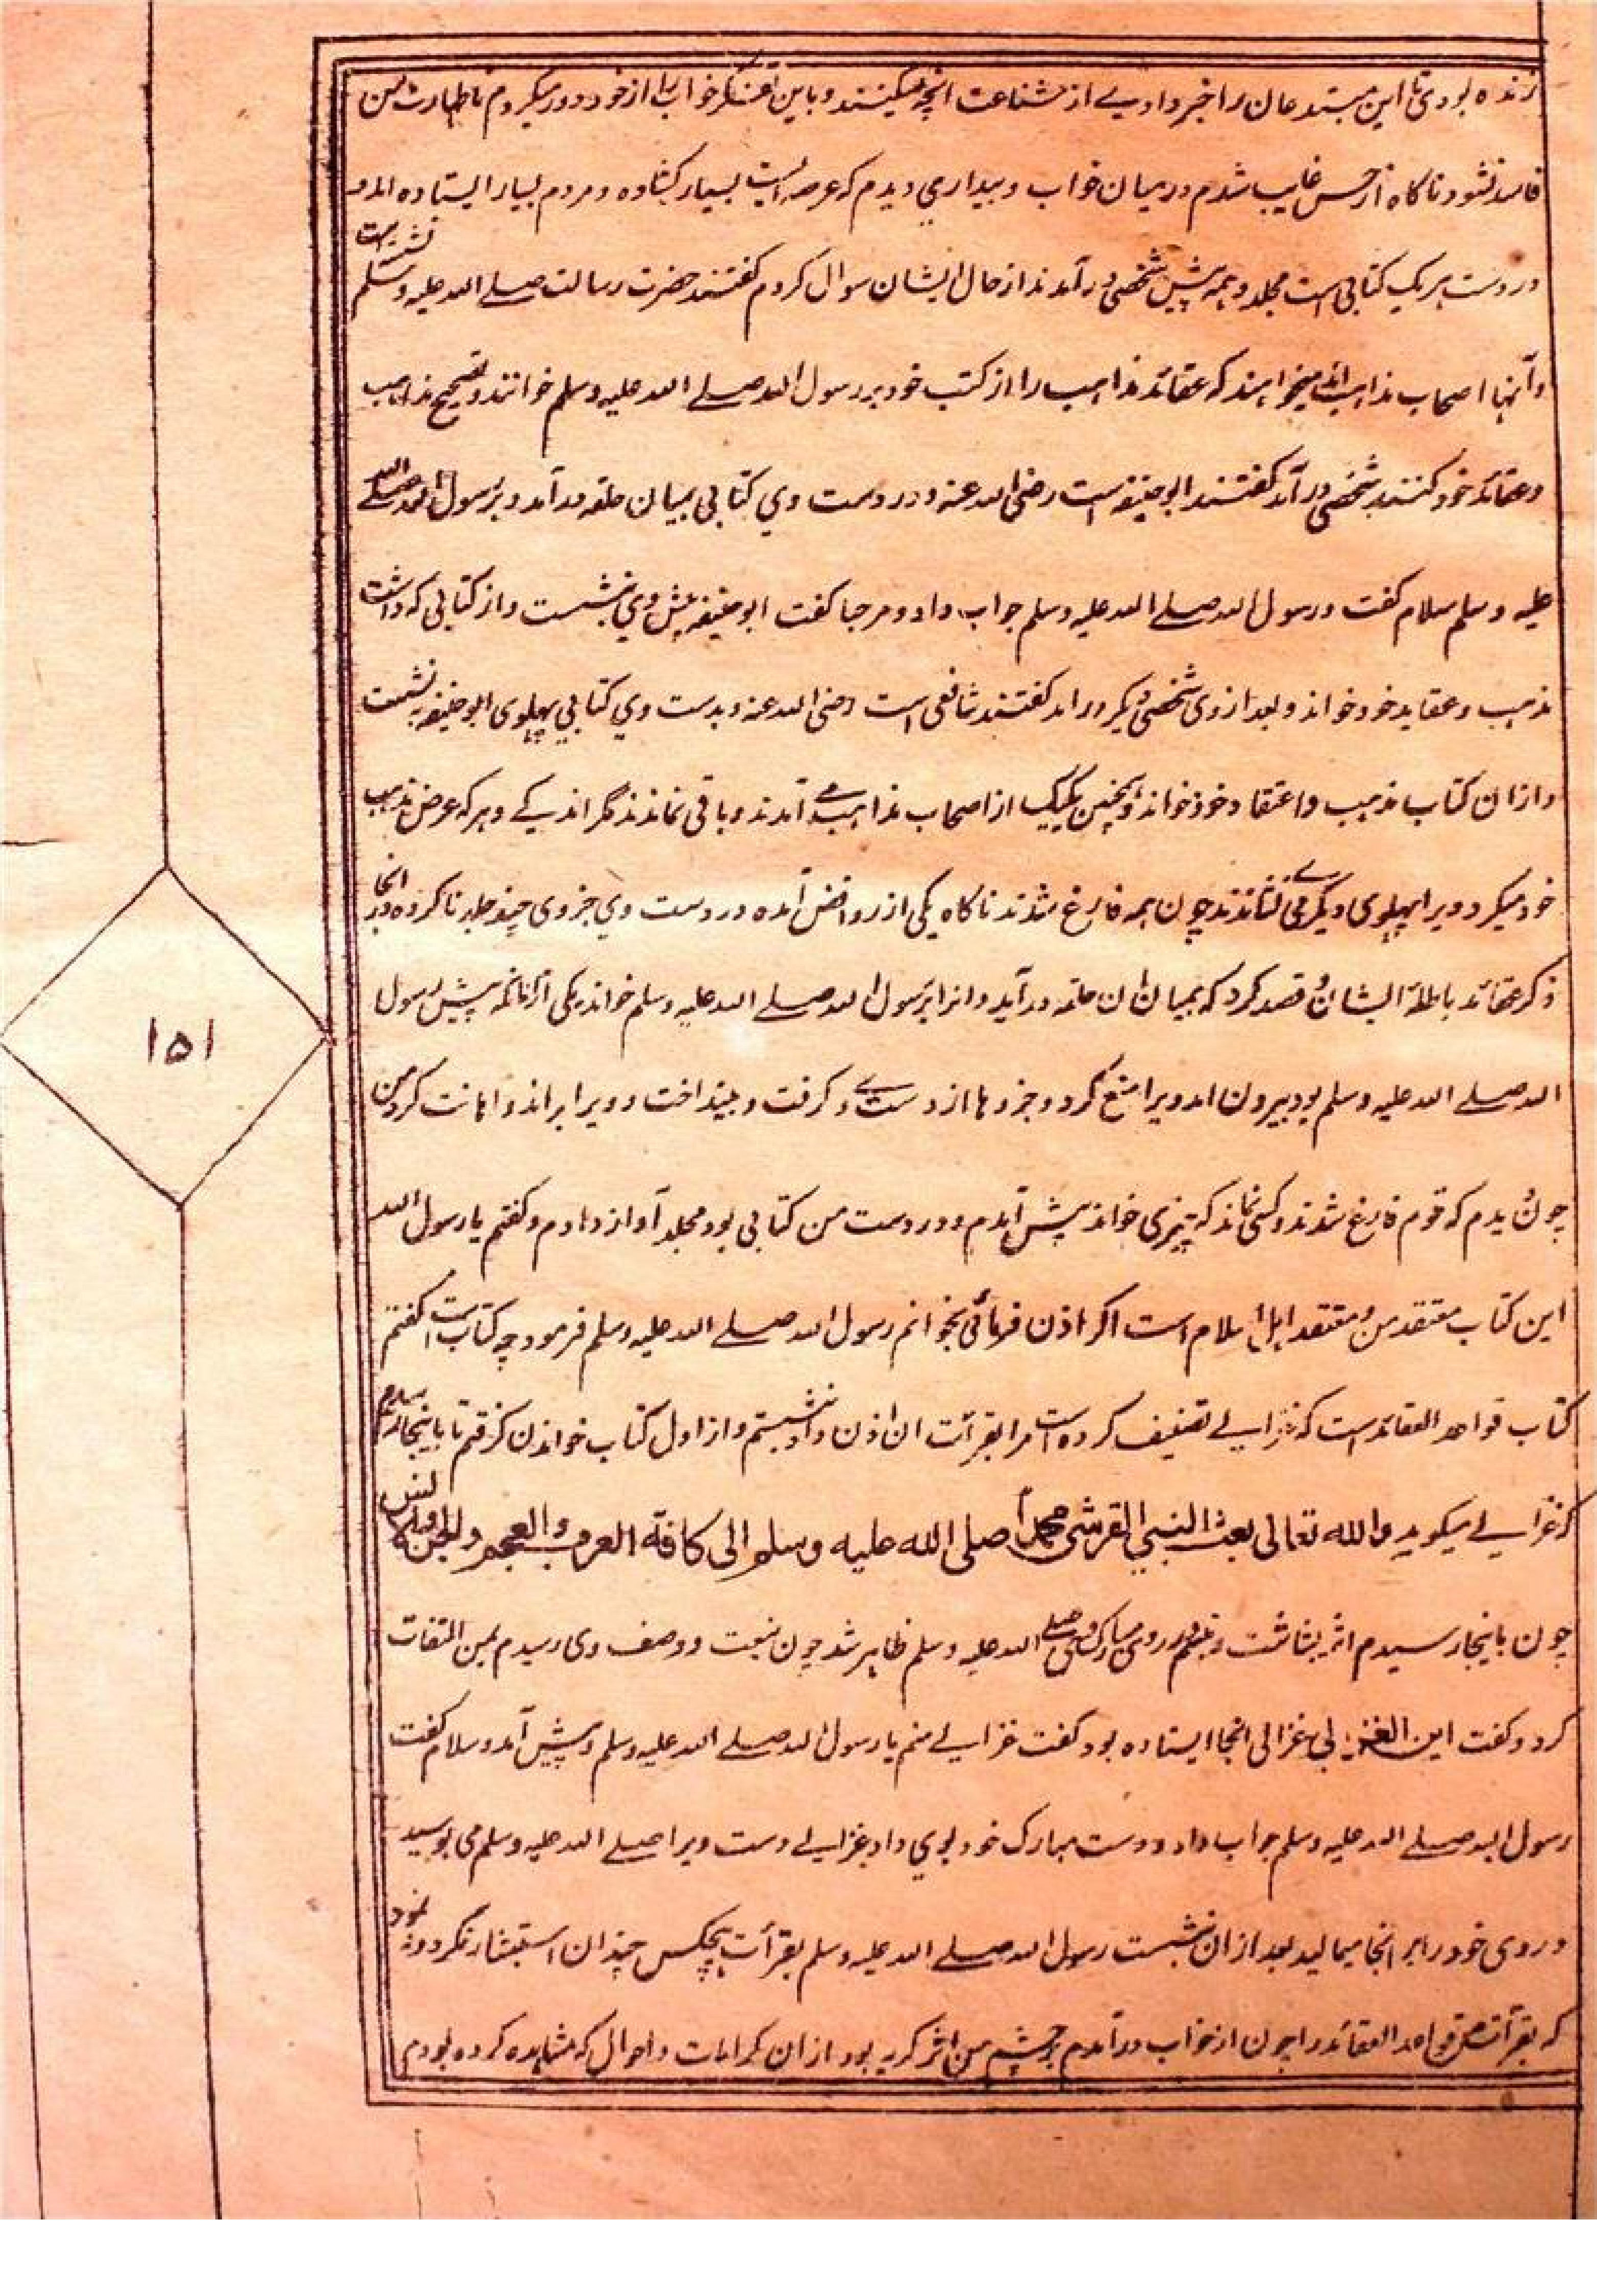 زنده بودی تا این مبتدعان را خبر دادے از شناعت آنچه میکنند و باین تفکر خواب را از خود دور میکردم تا طهارت من
فاسد نشود ناگاه از حس غایب شدم در میان خواب و بیداری دیدم که عرصه ایست بسیار کشاده و مردم بسیار ایستاده اند و
در دست هر یک کتابی است مجلد و همه پیش شخصی در آمدند از حال ایشان سوال کردم گفتند حضرت رسالت صلے الله علیه وسلم نشسته است
و آنها اصحاب مذاهب اند میخواهند که عقائد مذاهب را از کتب خود بر رسول الله صلے الله علیه وسلم خوانند و تصحیح مذاهب
و عقائد خود کنند شخصی در آمد گفتند ابو حنیفه است رضی الله عنه و در دست وی کتابی بمیان حلقه در آمد و بر رسول الله صلے الله
علیه وسلم سلام گفت و رسول الله صلے الله علیه وسلم جواب داد و مرحبا گفت ابو حنیفه پیش وی بنشست و از کتابی که داشت
مذهب و عقاید خود خواند و بعد از وی شخصی دیگر در امد گفتند شافعی است رضی الله عنه و بدست وی کتابی پهلوی ابو حنیفه بنشست
و ازان کتاب مذهب و اعتقاد خود خواند و همچنین یک یک از اصحاب مذاهب مے آمدند و باقی نماندند مگر اندکے و هر که عرض مذهب
خود میکرد ویرا پهلوی دیگرے می نشاندند چون همه فارغ شدند ناگاه یکی از روافض آمده در دست وی جزوی چند جلد نا کرده در انجا
ذکر عقائد باطلۀ ایشان و قصد کرد که بمیان ان حلقه در آید و انرا بر رسول الله صلے الله علیه وسلم خواند یکی از آنانکه پیش رسول
الله صلے الله علیه وسلم بود بیرون امد ویرا منع کرد و جزوها از دست وے گرفت و بینداخت و ویرا براند و اهانت کرد من
چون دیدم که قوم فارغ شدند و کسی نماند که چیزی خواند پیش آمدم و در دست من کتابی بود مجلد آواز دادم و گفتم یا رسول الله
این کتاب معتقد من و معتقد اهل اسلام است اگر اذن فرمائی بخوانم رسول الله صلے الله علیه وسلم فرمود چه کتاب است گفتم
کتاب قواعد العقائد است که غزالے تصنیف کرده است مرا بقرائت ان اذن داد بنشستم و از اول کتاب خواندن گرفتم تا باینجا رسیدم
که غزالے میگوید والله تعالی بعث النبی القرشی محمدا صلی الله علیه وسلم الی کافة العرب والعجم والجن والانس
چون باینجا رسیدم اثر بشاشت و تبسم در روی مبارک وی صلے الله علیه وسلم ظاهر شد چون بنعت و وصف وی رسیدم بمن التفات
کرد و گفت این الغزالی غزالی انجا ایستاده بود گفت غزالے منم یا رسول الله صلے الله علیه وسلم و پیش آمد و سلام گفت
رسول الله صلے الله علیه وسلم جواب داد و دست مبارک خود بوی داد غزالے دست ویرا صلے الله علیه وسلم می بوسید
و روی خود را بر انجا میمالید بعد ازان بنشست رسول الله صلے الله علیه وسلم بقرائت هیچکس چندان استبشار نکرد و ننمود
که بقرائت من قواعد العقائد را چون از خواب در آمدم بر چشم من اثر گریه بود از ان کرامات و احوال که مشاهده کرده بودم
۱۵۱